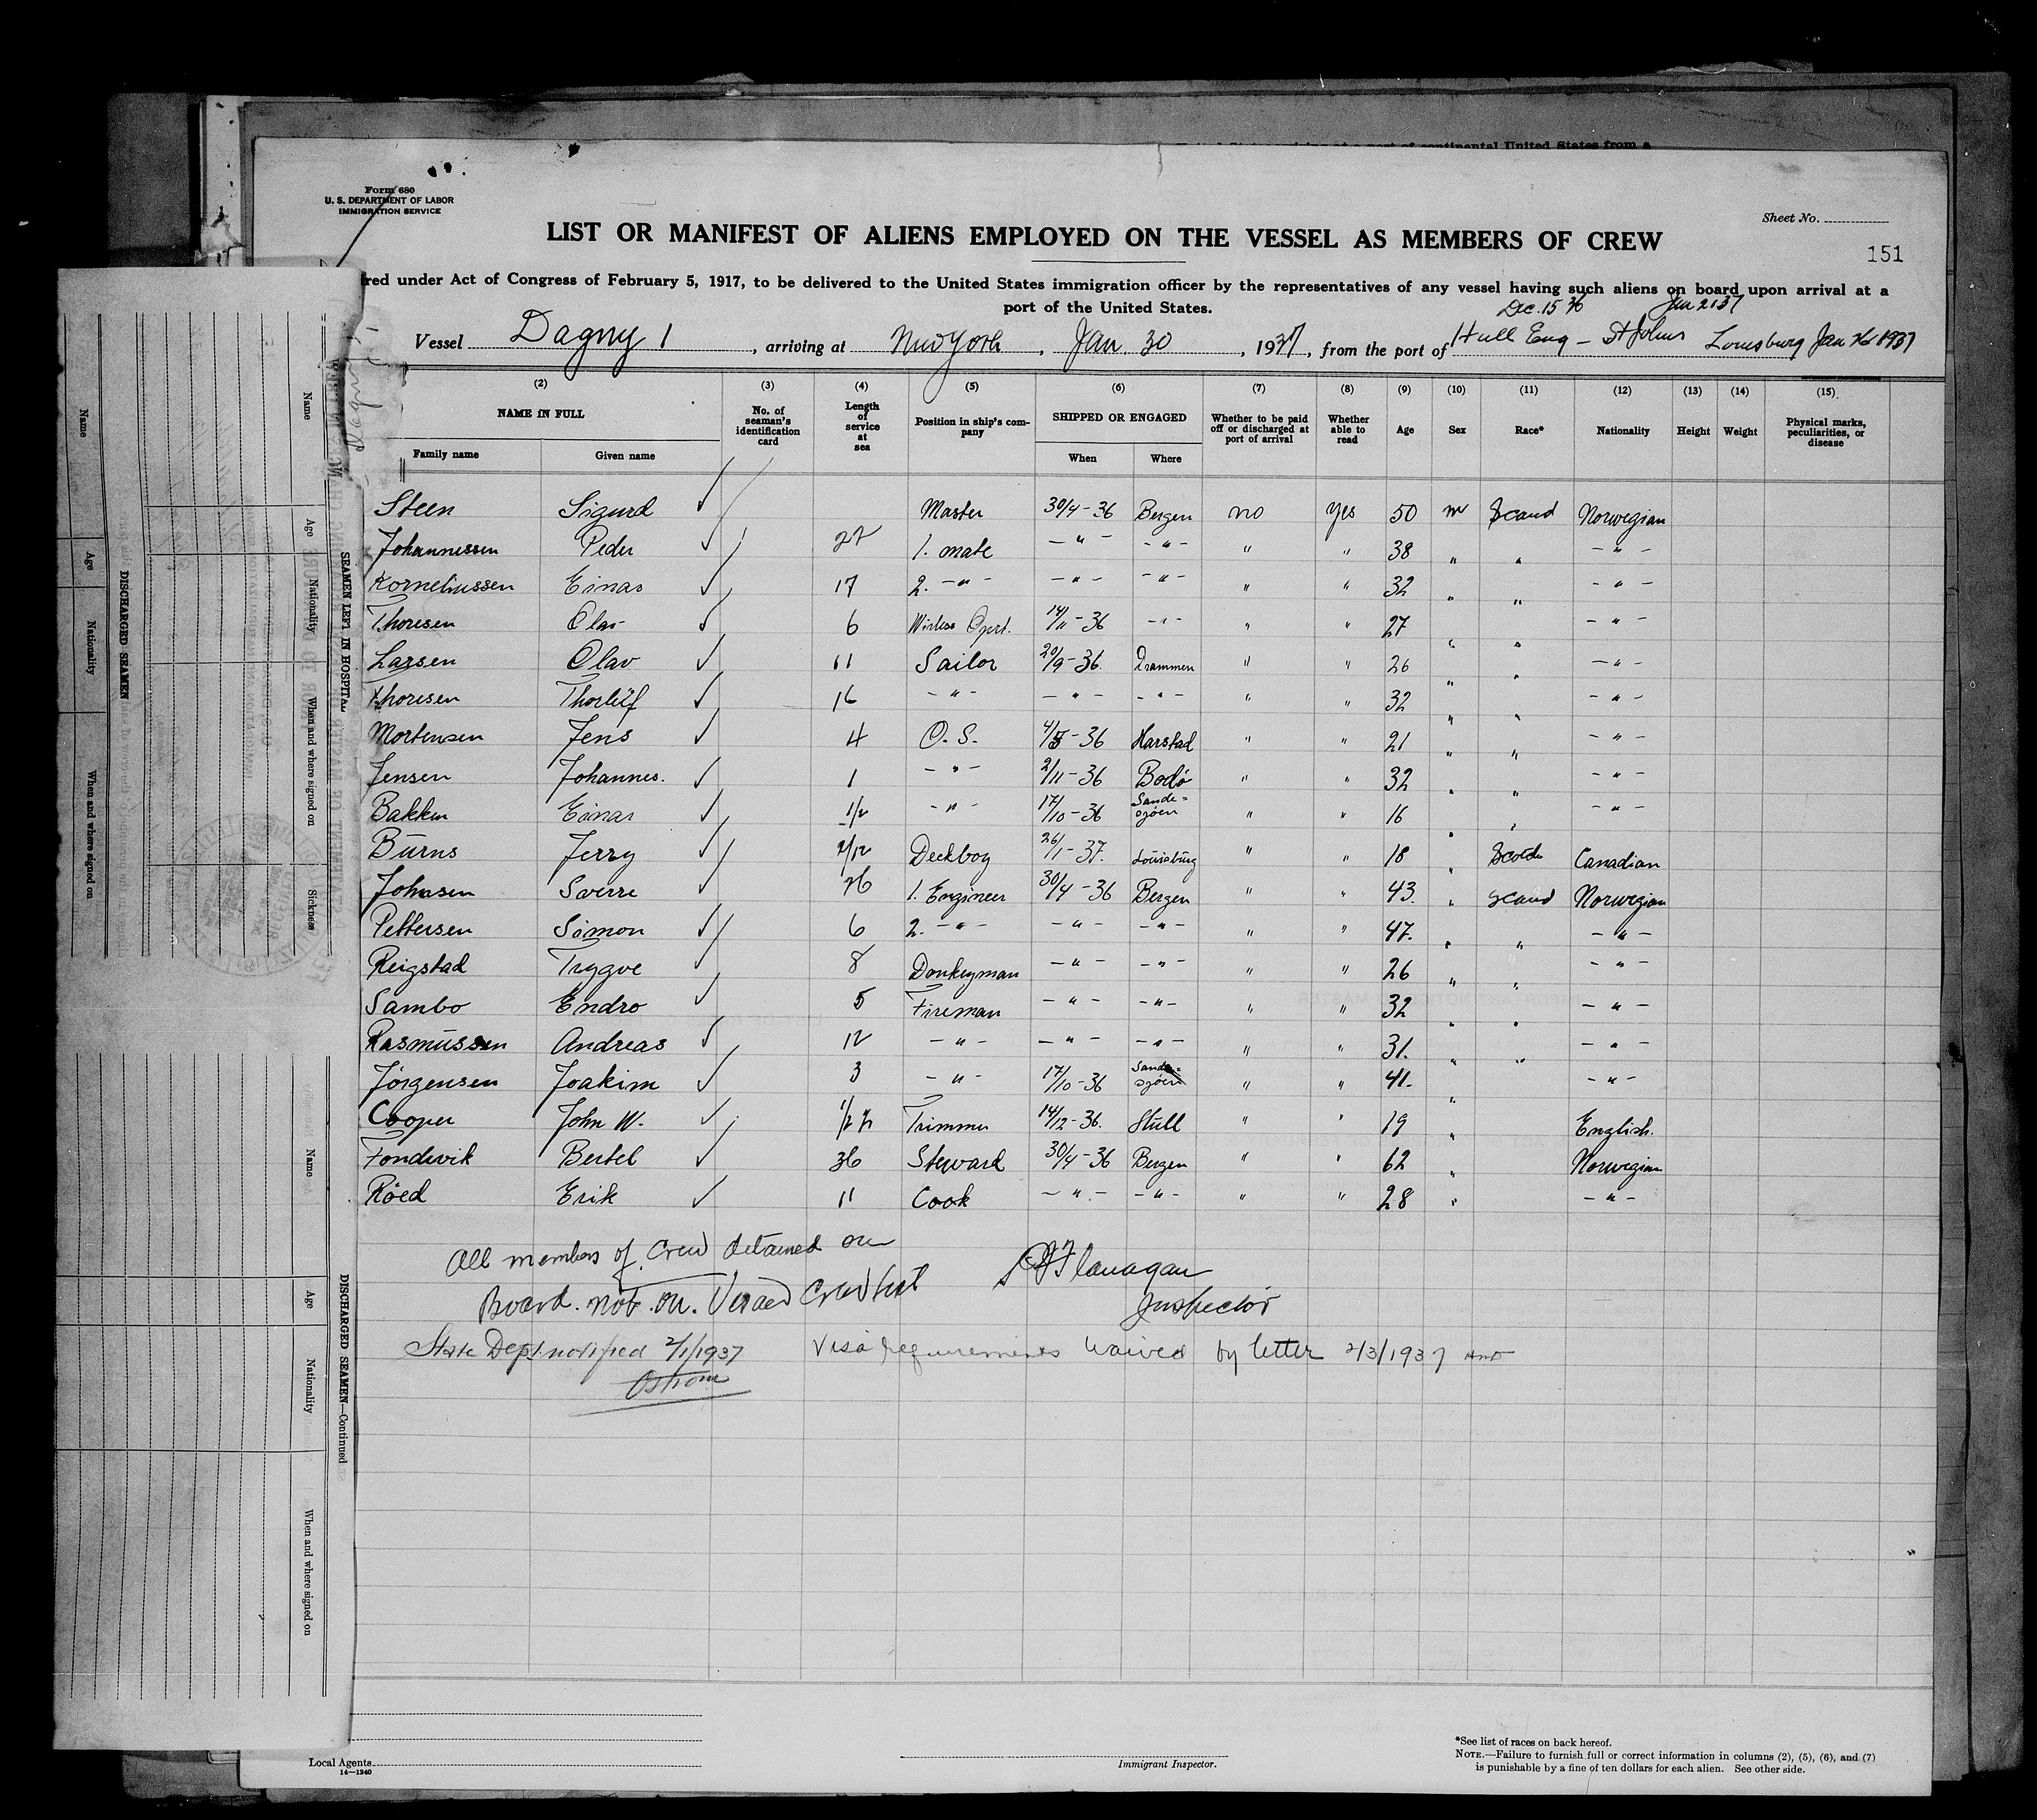 Form 680
U. S. DEPARTMENT OF LABOR
IMMIGRATION SERVICE
Sheet No.
LIST OR MANIFEST OF ALIENS EMPLOYED ON THE VESSEL AS MEMBERS OF CREW
151
red under Act of Congress of February 5, 1917, to be delivered to the United States immigration officer by the representatives of any vessel having such aliens on board upon arrival at a
port of the United States.
Dec. 15 36 Jan 2 137
Vessel Dagny 1, arriving at New York, Jan. 30, 1937, from the port of Hull Eng - St Johns Louisburg Jan 26 1937
(2) (3) (4) (5) (6) (7) (8) (9) (10) (11) (12) (13) (14) (15)
NAME IN FULL No. of seaman's identification card Length of service at sea Position in ship's company SHIPPED OR ENGAGED Whether to be paid off or discharged at port of arrival Whether able to read Age Sex Race* Nationality Height Weight Physical marks, peculiarities, or disease
Family name Given name When Where
Steen Sigurd ✓ Master 30/4-36 Bergen no Yes 50 m Scand Norwegian
Johannessen Peder ✓ 22 1. mate -"- -"- " " 38 " " -"-
Korneliussen Einar ✓ 17 2. -"- -"- -"- " " 32 " " -"-
Thoresen Olav ✓ 6 Wirless Oprt. 14/11-36 -"- " " 27 " " -"-
Larsen Olav ✓ 11 Sailor 20/9-36. Drammen " " 26 " " -"-
Thoresen Thorleif ✓ 16 -"- -"- -"- " " 32 " " -"-
Mortensen Jens ✓ 4 O. S. 4/5-36 Harstad " " 21 " " -"-
Jensen Johannes. ✓ 1 -"- 2/11-36 Bodø " " 32 " " -"-
Bakken Einar ✓ 1/2 -"- 17/10-36 Sande=sjøen " " 16 " " -"-
Burns Jerry ✓ 2/12 Deckboy 26/1-37. Louisburg " " 18 " Scotch Canadian
Johnsen Sverre ✓ 26 1. Engineer 30/4-36 Bergen " 43. " Scand Norwegian
Pettersen Simon ✓ 6 2. -"- -"- -"- " " 47. " " -"-
Reigstad Trygve ✓ 8 Donkeyman -"- -"- " " 26 " " -"-
Sambo Endro ✓ 5 Fireman -"- -"- " " 32 " " -"-
Rasmussen Andreas ✓ 12 -"- -"- -"- " " 31. " " -"-
Jørgensen Joakim ✓ 3 -"- 17/10-36 Sande=sjøen " " 41. " -"-
Cooper John W. ✓ Trimmer 14/12-36. Hull " " 19 " English.
Fondevik Bertel ✓ 36 Steward 30/4-36 Bergen " " 62 " Norwegian
Röed Erik ✓ 11 Cook -"- -"- " " 28 " -"-
All members of Crew detained on
Board. not on. Visaed Crew list
Flanagan
Inspector
State Dept notified 2/1/1937 Visa requirements waived by letter 2/3/1937
Ostrom
Local Agents
14—1240
Immigrant Inspector.
*See list of races on back hereof.
NOTE.—Failure to furnish full or correct information in columns (2), (5), (6), and (7)
is punishable by a fine of ten dollars for each alien. See other side.
Name
Age
Nationality
When and where signed on
DISCHARGED SEAMEN
Name
Age
Nationality
When and where signed on
Sickness
SEAMEN LEFT IN HOSPITAL
Name
Age
Nationality
When and where signed on
DISCHARGED SEAMEN—Continued